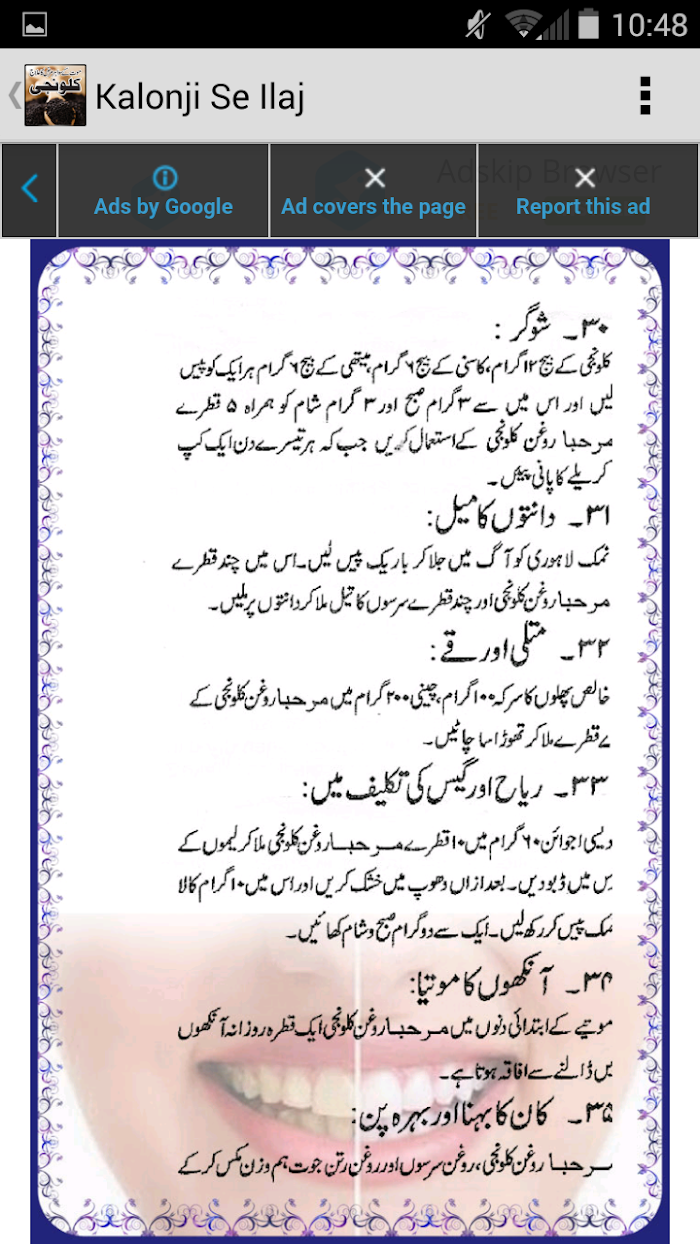 10:48
موت کے سوا ہر مرض کا علاج
کلونجی
Kalonji Se Ilaj
Adskip Browser
Ads by Google
Ad covers the page
Report this ad
۳۰۔ شوگر:
کلونجی کے بیج ۱۲ گرام، کاسنی کے بیج ۶ گرام، میتھی کے بیج ۶ گرام ہر ایک کو پیس
لیں اور اس میں سے ۳ گرام صبح اور ۳ گرام شام کو ہمراہ ۵ قطرے
مرحبا روغن کلونجی کے استعمال کریں جب کہ ہر تیسرے دن ایک کپ
کریلے کا پانی پیئں۔
۳۱۔ دانتوں کا میل:
نمک لاہوری کو آگ میں جلا کر باریک پیس لیں۔ اس میں چند قطرے
مرحبا روغن کلونجی اور چند قطرے سرسوں کا تیل ملا کر دانتوں پر ملیں۔
۳۲۔ متلی اور قے:
خالص پھلوں کا سرکہ ۱۰۰ گرام، چینی ۲۰۰ گرام میں مرحبا روغن کلونجی کے
۷ قطرے ملا کر تھوڑا سا چاٹیں۔
۳۳۔ ریاح اور گیس کی تکلیف میں:
دیسی اجوائن ۶۰ گرام میں ۱۰ قطرے مرحبا روغن کلونجی ملا کر لیموں کے
میں ڈبو دیں۔ بعد ازاں دھوپ میں خشک کریں اور اس میں ۱۰ گرام کالا
نمک پیس کر رکھ لیں۔ ایک سے دو گرام صبح و شام کھائیں۔
۳۴۔ آنکھوں کا موتیا:
موتیے کے ابتدائی دنوں میں مرحبا روغن کلونجی ایک قطرہ روزانہ آنکھوں
میں ڈالنے سے افاقہ ہوتا ہے۔
۳۵۔ کان کا بہنا اور بہرہ پن:
مرحبا روغن کلونجی، روغن سرسوں اور روغن رتن جوت ہم وزن مکس کر کے